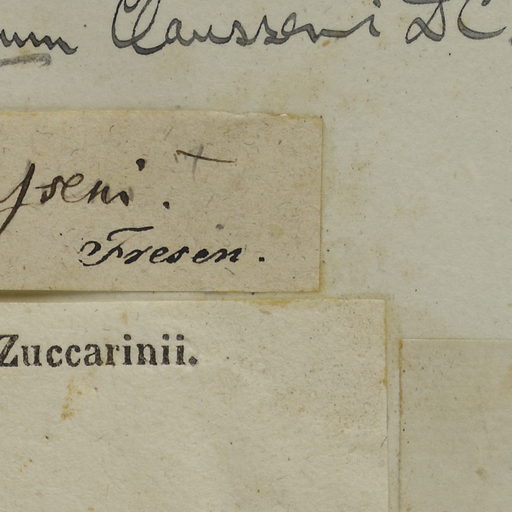 um Clausseni DC.
sseni.
Fresen.
Zuccarinii.